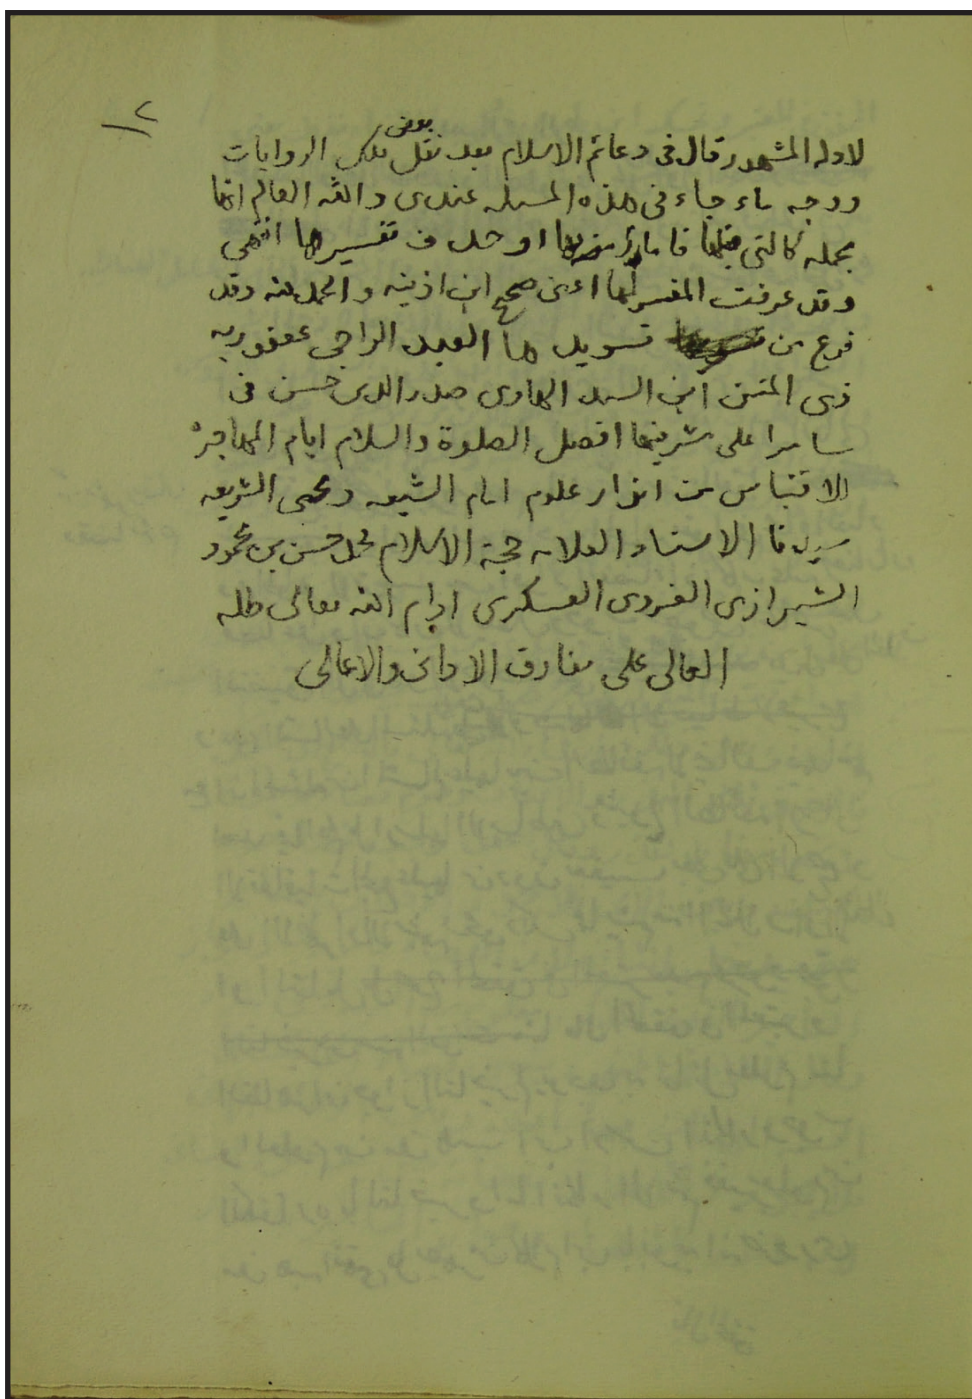 ١٢
لادلة المشهور قال فى دعائم الاسلام بعد نقل بعض تلك الروايات
ووجه ما جاء فى هذه المسئله عندى والله العالم انها
بجمله كالتى قبلها او حذف تفسيرها انتهى
وقد عرفت المفسر لها اعنى صحيح ابن اذينه والحمد لله وقد
فرغ من تسويدها العبد الراجى عفو ربه
ذى المنن ابن السيد الهادى صدر الدين حسن فى
سامرا على مشرفها افضل الصلوة والسلام ايام المهاجره
لاقتباس من انوار علوم امام الشيعه ومحيى الشريعه
سيدنا الاستاد العلامه حجة الاسلام محمد حسن بن محمود
الشيرازى الغروى العسكرى ادام الله تعالى ظله
العالى على مفارق الادانى والاعالى